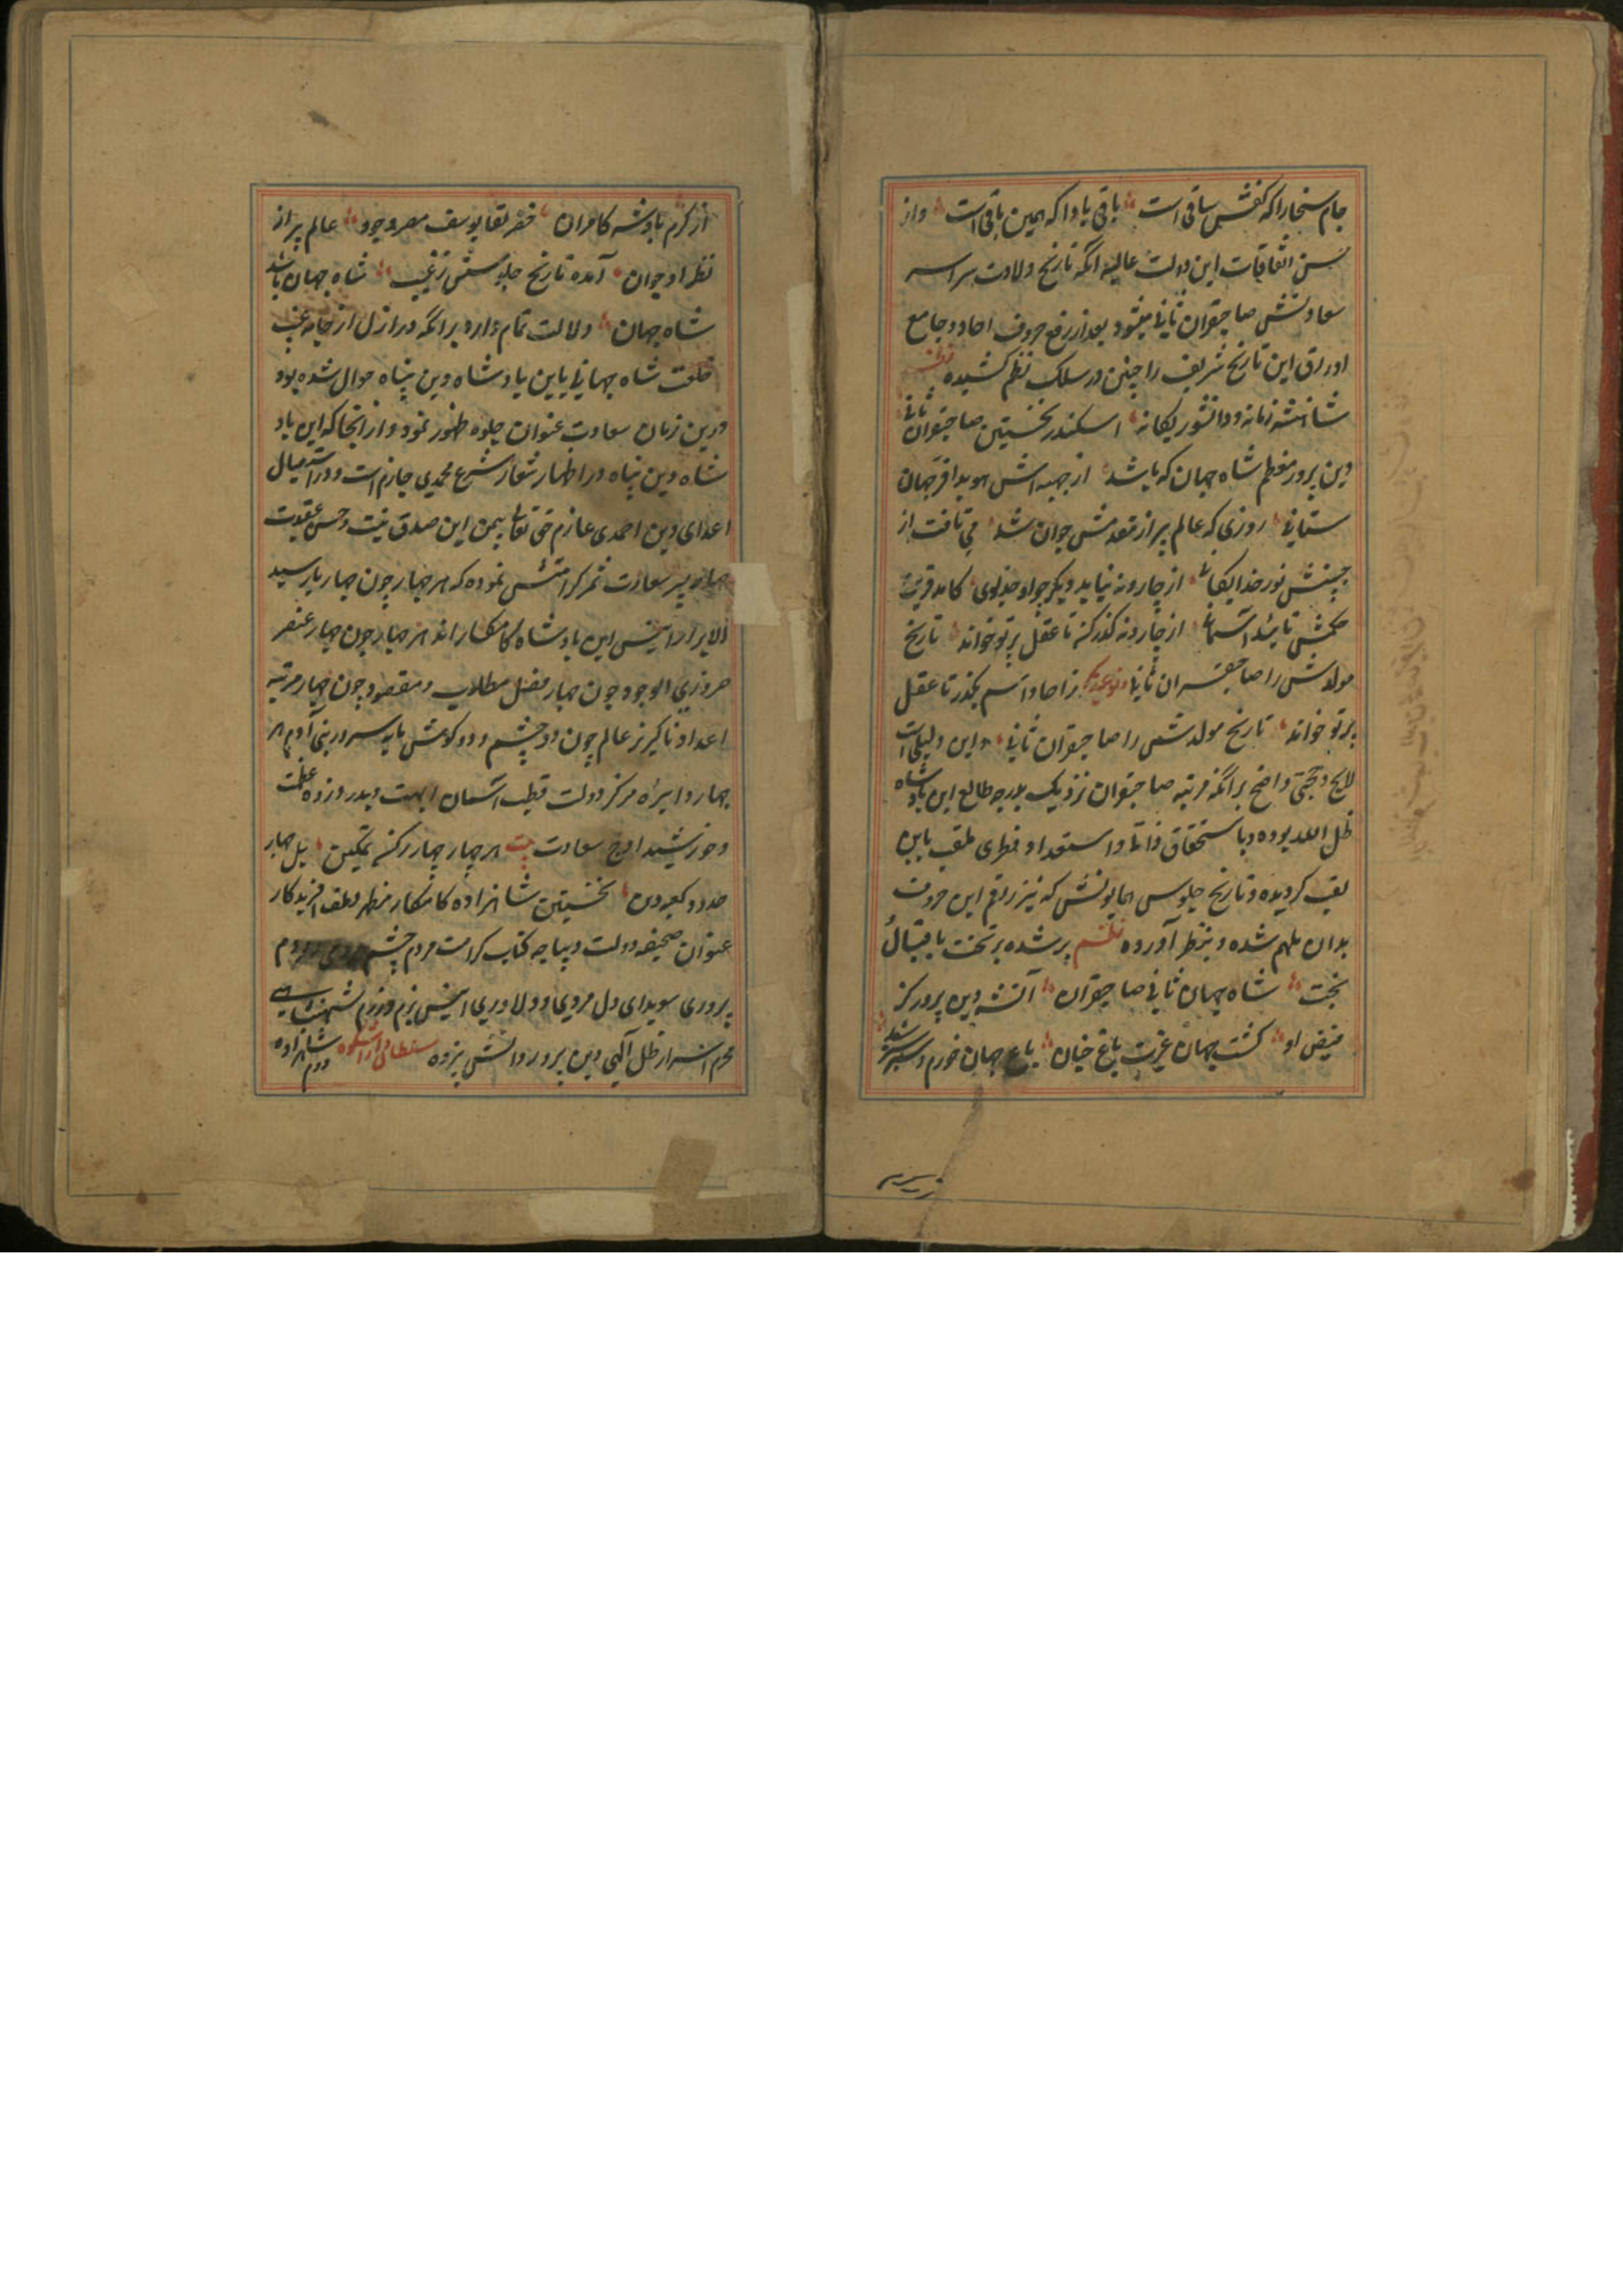 جام سخا را که کفش ساقی است باقی بادا که همین باقی است و از
حسن اتفاقات این دولت عالیه آنکه تاریخ ولادت سراسر
سعادتش صاحبقران ثانی میشود بعد از رفع حروف احاد و جامع
اوراق این تاریخ شریف را چنین در سلک نظم کشیده
شاهنشه زمانه و دانشور یگانه اسکندر نخستین صاحبقران ثانی
دین پرور معظم شاه جهان که باشد از جبهه اش هویدا فر جهان
ستانی روزی که عالم پیر از مقدمش جوان شد می تافت از
جبینش نور خدایگانی از چار
حکمش تائید آسمانی از چار کذر کن تا عقل پرتو خواند تاریخ
مولدش را صاحبقران ثانی ز احاد اسم بگذر تا عقل
پرتو خواند تاریخ مولدش را صاحبقران ثانی و این دلیلی است
لایح و حجتی واضح بر آنکه مرتبه صاحبقران نزدیک بدرجه طالع این بادشاه
ظل الله بوده و با استحقاق ذاتی و استعداد فطری ملقب باین
لقب گردیده و تاریخ جلوس همایونش که نیز راقم این حروف
بدان ملهم شده و بنظر آورده نظم پر شده بر تخت باقبال
بخت شاه جهان ثانی صاحبقران آن شه دین پرور کز
فیض او گشت جهان غیرت باغ جنان باغ جهان خرم و سرسبز شد
از کرم بادشه کامران خضر لقا یوسف مصر وجود عالم پیر از
نظر او جوان آمده تاریخ جلوسش ز غیب شاه جهان باشد
شاه جهان دلالت تمام دارد بر آنکه در ازل از جامه غیب
خلعت شاه جهانی باین بادشاه دین پناه حوال شده بود
درین زمان سعادت عنوان جلوه ظهور نمود و از آنجا که این باد
شاه دین پناه در اظهار شعار شرع محمدی جازم است و در استیصال
اعدای دین احمدی عازم حق تعالی بیمن این صدق نیت و حسن عقیدت
چهار پسر سعادت ثمر کرامتش نموده که هر چهار چون چهار یار سید
الابرار انیس این بادشاه کامکار اند هر چهار چون چهار عنصر
ضروری الوجود چون چهار فصل مطلوب و مقصود چون چهار مرتبه
اعداد ناگزیر عالم چون دو چشم و دو گوش مایه سرور بنی آدم هر
چهار دایره مرکز دولت قطب آسمان ابهت و بدر عظمت
و خورشید اوج سعادت بیت هر چهار چهار رکن تمکین بل چهار
حدود کعبه دین نخستین شاهزاده کامکار مظهر لطف آفریدگار
عنوان صحیفه دولت دیباچه کتاب کرامت مردم چشم
پروری سویدای دل مردی و دلاوری انیس بزم و رزم شهنشاهی
محرم اسرار ظل الهی دین پرور دانش پژوه سلطان دارا شکوه دوم شاهزاده